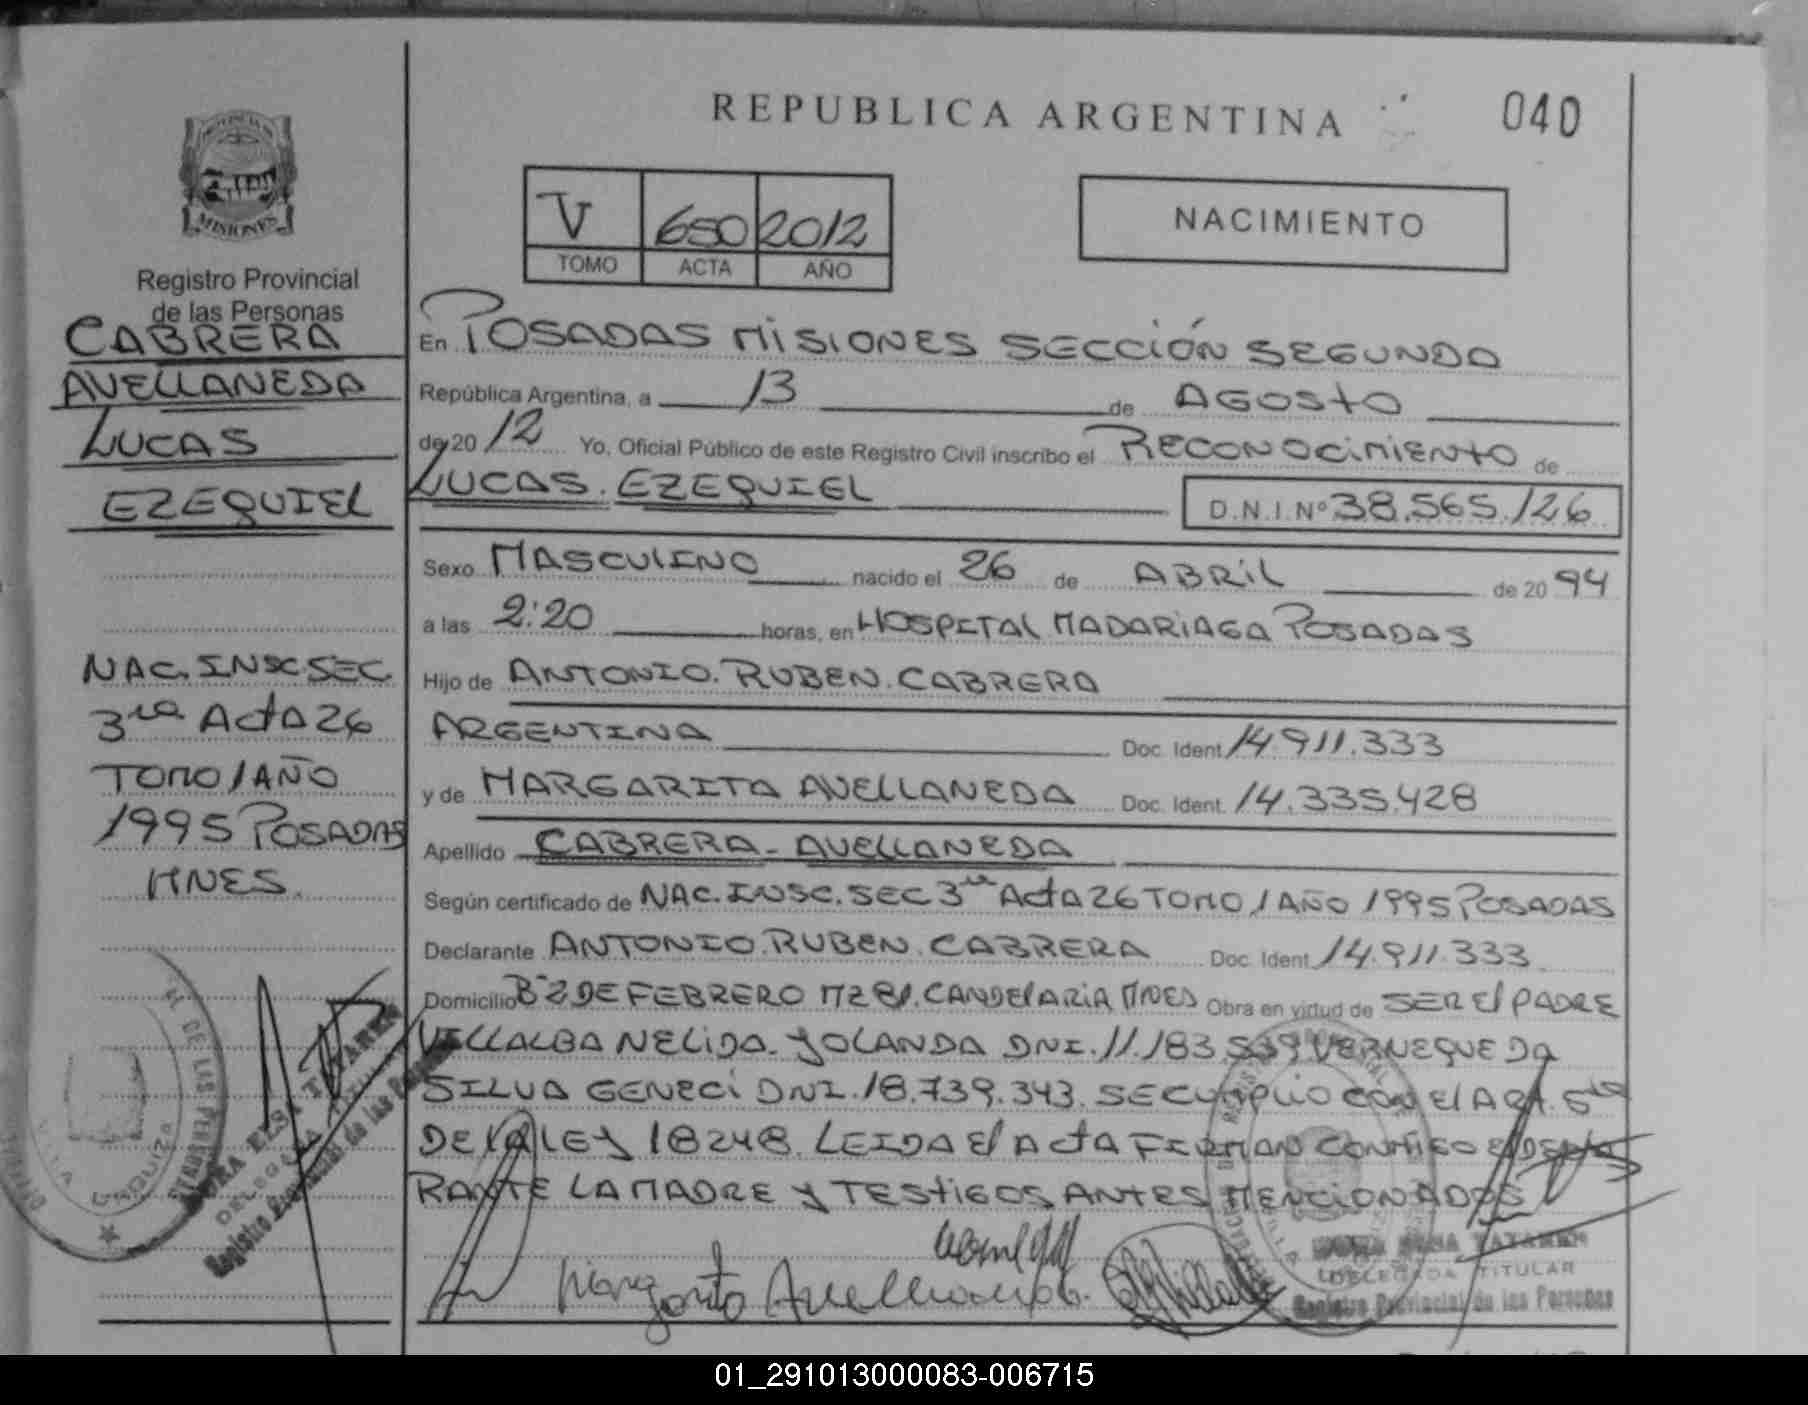 REPUBLICA ARGENTINA
040
PROVINCIA DE
MISIONES
Registro Provincial
de las Personas
CABRERA
AVELLANEDA
LUCAS
EZEQUIEL
NAC. INSC SEC.
3ra Acta 26
TOMO 1 AÑO
1995 POSADAS
MNES.
V 650 2012
TOMO ACTA AÑO
NACIMIENTO
En POSADAS MISIONES SECCIÓN SEGUNDA
República Argentina, a 13 de AGOSTO
de 20 12 Yo, Oficial Público de este Registro Civil inscribo el RECONOCIMIENTO de
LUCAS. EZEQUIEL D.N.I. Nº 38.565.126
Sexo MASCULINO nacido el 26 de ABRIL de 20 94
a las 2:20 horas, en HOSPITAL MADARIAGA POSADAS
Hijo de ANTONIO. RUBEN. CABRERA
ARGENTINA Doc. Ident. 14.911.333
y de MARGARITA AVELLANEDA Doc. Ident. 14.335.428
Apellido CABRERA - AVELLANEDA
Según certificado de NAC. INSC. SEC 3ra Acta 26 TOMO 1 AÑO 1995 POSADAS
Declarante ANTONIO. RUBEN. CABRERA Doc. Ident. 14.911.333
Domicilio Bº 2 DE FEBRERO MZ 81. CANDELARIA MNES Obra en virtud de SER El PADRE
VILLALBA NELIDA. YOLANDA DNI. 11.183.539 VERNEQUE DA
SILVA GENECI DNI. 18.739.343. SE CUMPLIO CON El ART. 5to
DE LA LEY 18248. LEIDA El ACTA FIRMAN CONMIGO El DECLA
RANTE LA MADRE Y TESTIGOS ANTES MENCIONADOS
Margarita Avellaneda
DELEGADA TITULAR
Registro Provincial de las Personas
DELEGADA TITULAR
Registro Provincial de las Personas
01_291013000083-006715